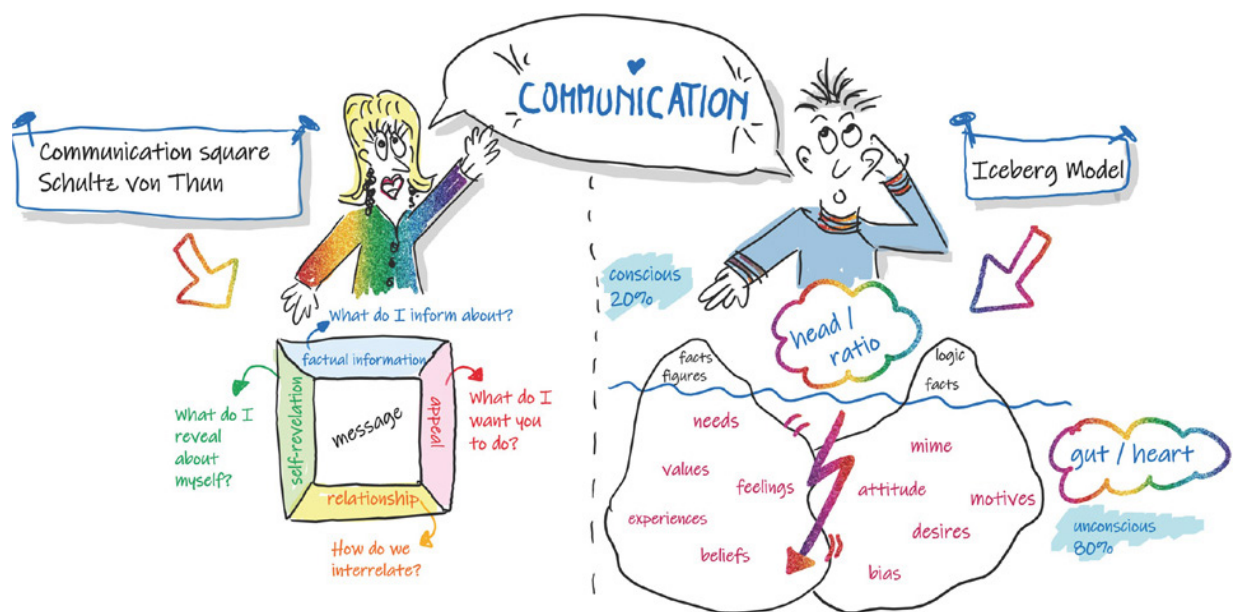 COMMUNICATION
Communication square
Schultz von Thun
What do I inform about?
factual information
What do I
reveal
about
myself?
self-revelation
message
appeal
What do I
want you
to do?
relationship
How do we
interrelate?
Iceberg Model
conscious
20%
head /
ratio
facts
figures
logic
facts
needs
values
feelings
experiences
beliefs
mime
attitude
motives
desires
bias
gut / heart
unconscious
80%